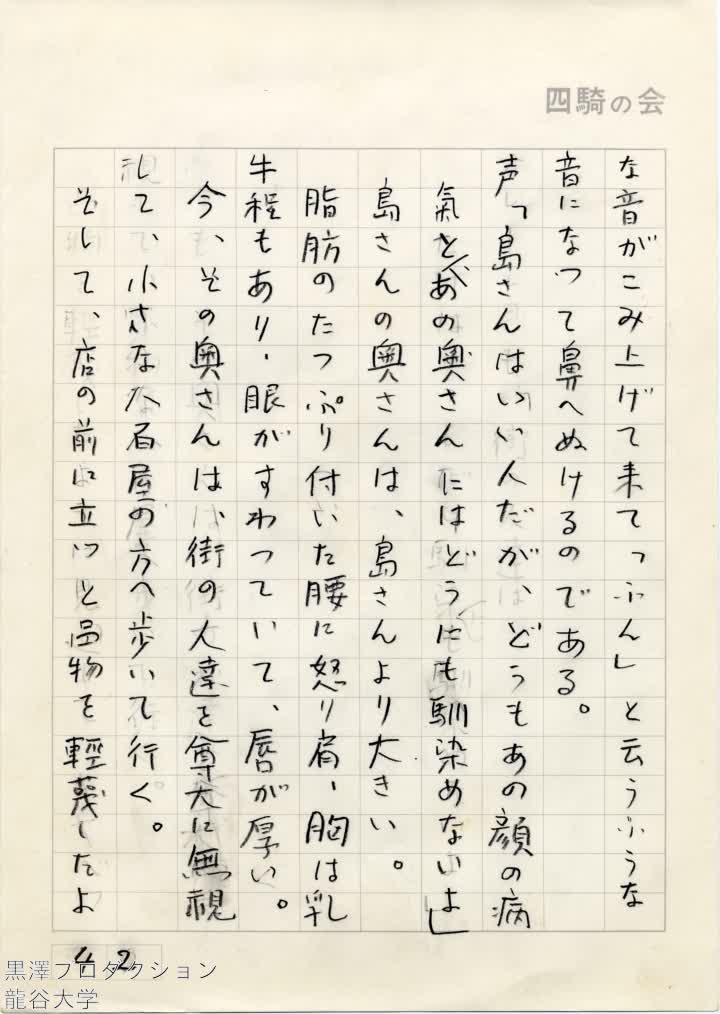 四騎の会
な音がこみ上げて来てっふん」と云うふうな
音になつて鼻へぬけるのである。
声「島さんはいい人だが、どうもあの顔の病
氣とあの奥さんにはどうにも馴染めないよ」
島さんの奥さんは、島さんより大きい。
脂肪のたつぷり付いた腰に怒り肩、胸は乳
牛程もあり、眼がすわつていて、唇が厚い。
今、その奥さんは、街の人達を尊大に無視
して、小さな八百屋の方へ歩いて行く。
そして、店の前に立つと品物を軽蔑したよ
42
黒澤プロダクション
龍谷大学